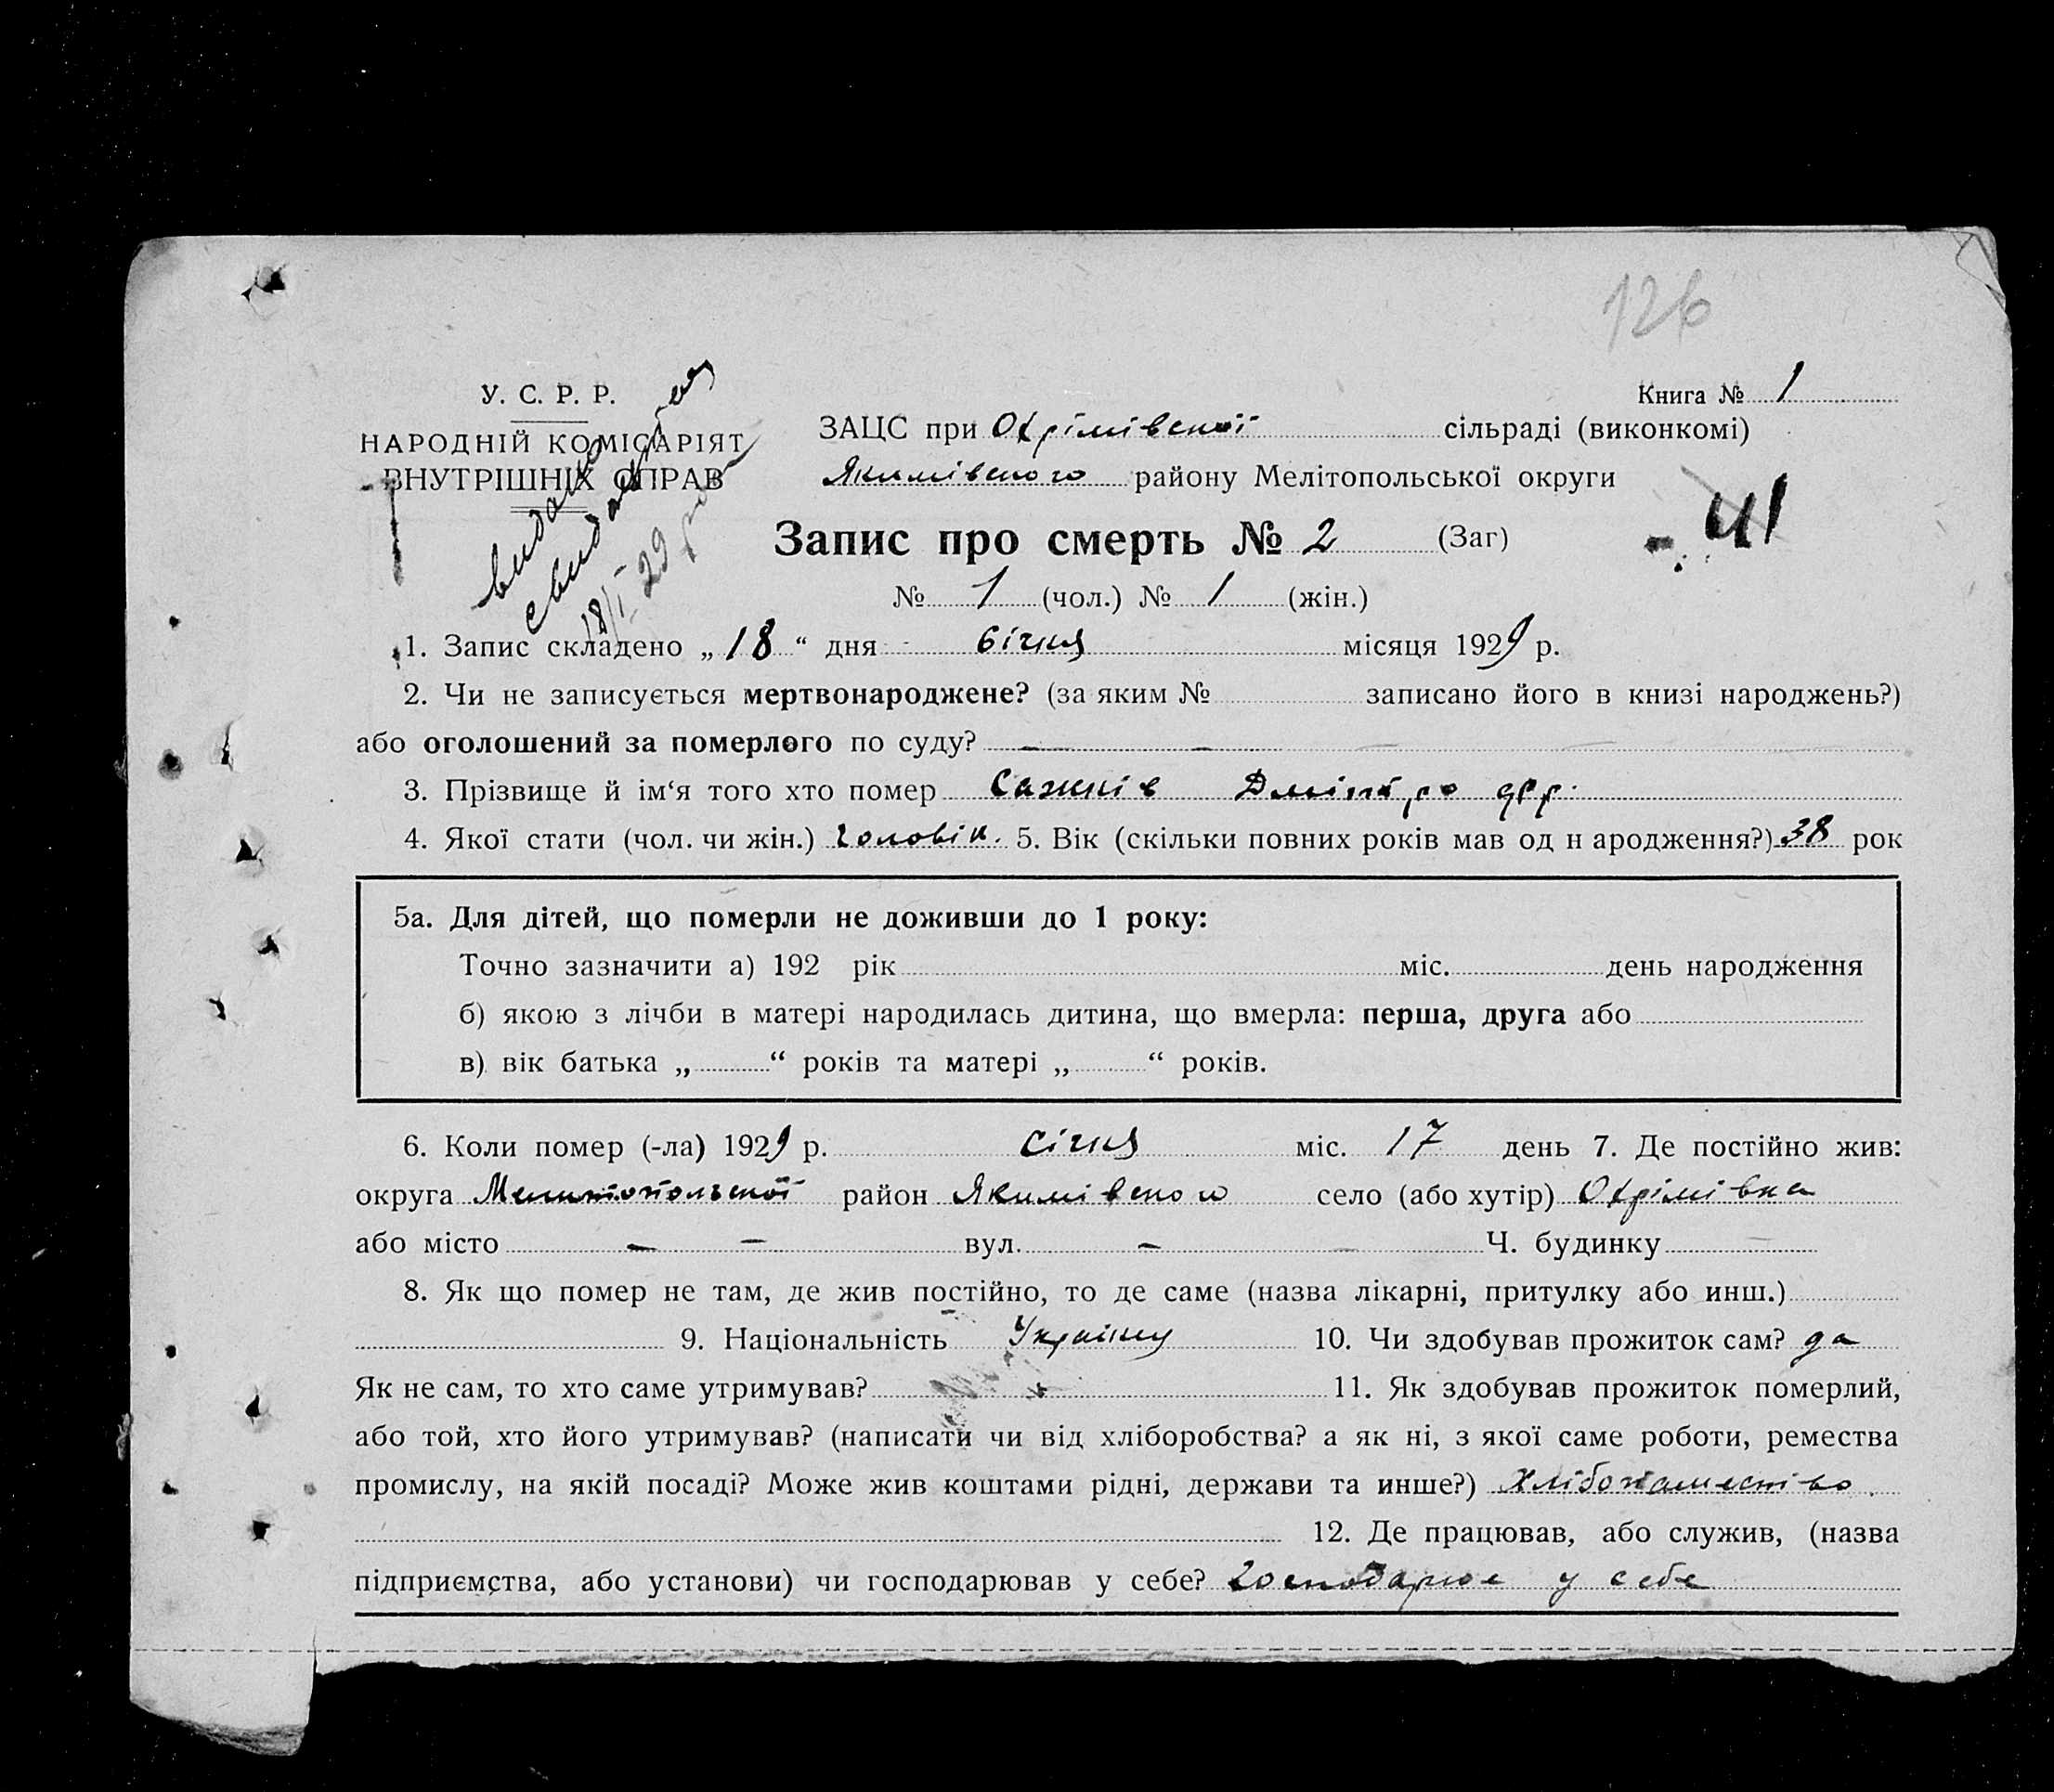 126
У. С. Р. Р.
НАРОДНІЙ КОМІСАРІЯТ
ВНУТРІШНІХ СПРАВ
видано
18/I-29
Книга № 1
ЗАЦС при Охрімівської сільраді (виконкомі)
Якимівського району Мелітопольської округи
41
Запис про смерть № 2 (Заг)
№ 1 (чол.) № 1 (жін.)
1. Запис складено „ 18 “ дня січня місяця 1929 р.
2. Чи не записується мертвонароджене? (за яким № записано його в книзі народжень?)
або оголошений за померлого по суду? — —
3. Прізвище й ім‘я того хто помер Сажнів Дмітро
4. Якої стати (чол. чи жін.) чоловік. 5. Вік (скільки повних років мав од н ародження?) 38 рок
5а. Для дітей, що померли не доживши до 1 року:
Точно зазначити а) 192 рік міс. день народження
б) якою з лічби в матері народилась дитина, що вмерла: перша, друга або
в) вік батька „ “ років та матері „ “ років.
6. Коли помер (-ла) 1929 р. січня міс. 17 день 7. Де постійно жив:
округа Мелитопольської район Якимівсько село (або хутір) Охрімівка
або місто — — вул. — Ч. будинку
8. Як що помер не там, де жив постійно, то де саме (назва лікарні, притулку або инш.)
9. Національність 10. Чи здобував прожиток сам? да
Як не сам, то хто саме утримував? 11. Як здобував прожиток померлий,
або той, хто його утримував? (написати чи від хліборобства? а як ні, з якої саме роботи, ремества
промислу, на якій посаді? Може жив коштами рідні, держави та инше?)
12. Де працював, або служив, (назва
підприємства, або установи) чи господарював у себе? господарює у себе